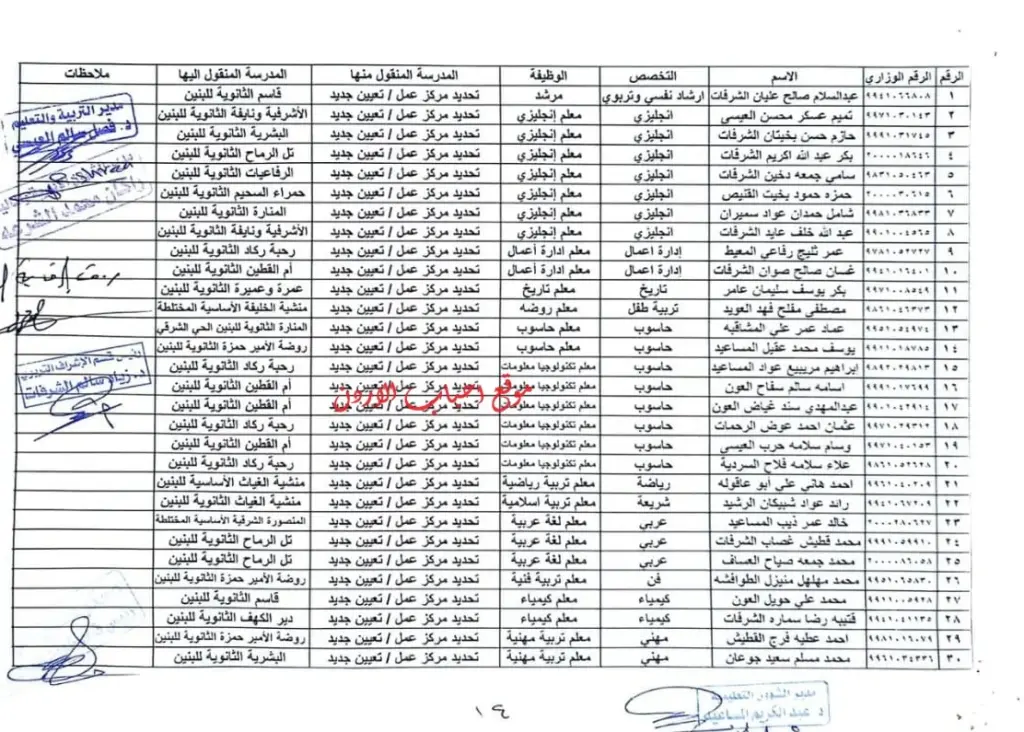 الرقم الرقم الوزاري الاسم التخصص الوظيفة المدرسة المنقول منها المدرسة المنقول اليها ملاحظات
١ ٩٩٤١٠٦٦٨٠٨ عبدالسلام صالح عليان الشرفات ارشاد نفسي وتربوي مرشد تحديد مركز عمل / تعيين جديد قاسم الثانوية للبنين
٢ ٩٩٧١٠٣٠١٤٣ تميم عسكر محسن العيسى انجليزي معلم إنجليزي تحديد مركز عمل / تعيين جديد الأشرفية ونايفة الثانوية للبنين
٣ ٩٩٩١٠٣١٧٤٥ حازم حسن بخيتان الشرفات انجليزي معلم إنجليزي تحديد مركز عمل / تعيين جديد البشرية الثانوية للبنين
٤ ٢٠٠٠٠١٨٦٤٦ بكر عبد الله اكريم الشرفات انجليزي معلم إنجليزي تحديد مركز عمل / تعيين جديد تل الرماح الثانوية للبنين
٥ ٩٨٣١٠٥٠٤٦٣ سامي جمعه دخين الشرفات انجليزي معلم إنجليزي تحديد مركز عمل / تعيين جديد الرفاعيات الثانوية للبنين
٦ ٢٠٠٠٠٣٠٦١٥ حمزه حمود بخيت القنيص انجليزي معلم إنجليزي تحديد مركز عمل / تعيين جديد حمراء السحيم الثانوية للبنين
٧ ٩٩٨١٠٣٦٨٣٣ شامل حمدان عواد سميران انجليزي معلم إنجليزي تحديد مركز عمل / تعيين جديد المنارة الثانوية للبنين
٨ ٩٩٠١٠٠٤٥٦٥ عبد الله خلف عايد الشرفات انجليزي معلم إنجليزي تحديد مركز عمل / تعيين جديد الأشرفية ونايفة الثانوية للبنين
٩ ٩٧٨١٠٥٢٧٢٧ عمر ثليج رفاعي المعيط إدارة اعمال معلم ادارة أعمال تحديد مركز عمل / تعيين جديد رحبة ركاد الثانوية للبنين
١٠ ٩٩٤١٠١٦٤٠١ غسان صالح صوان الشرفات إدارة اعمال معلم ادارة أعمال تحديد مركز عمل / تعيين جديد أم القطين الثانوية للبنين
١١ ٩٩٧١٠٠٨٥٤٩ بكر يوسف سليمان عامر تاريخ معلم تاريخ تحديد مركز عمل / تعيين جديد عمرة وعميرة الثانوية للبنين
١٢ ٩٨٦١٠٤٦٣٧٣ مصطفى مفلح فهد العويد تربية طفل معلم روضه تحديد مركز عمل / تعيين جديد منشية الخليفة الأساسية المختلطة
١٣ ٩٩٥١٠٥٤٩٧٤ عماد عمر علي المشاقبه حاسوب معلم حاسوب تحديد مركز عمل / تعيين جديد المنارة الثانوية للبنين الحي الشرقي
١٤ ٩٩١١٠١٨٧٨٥ يوسف محمد عقيل المساعيد حاسوب معلم حاسوب تحديد مركز عمل / تعيين جديد روضة الأمير حمزة الثانوية للبنين
١٥ ٩٨٩٢٠٢٩٨١٣ ابراهيم مريبيع عواد المساعيد حاسوب معلم تكنولوجيا معلومات تحديد مركز عمل / تعيين جديد رحبة ركاد الثانوية للبنين
١٦ ٩٩٩١٠١٧٦٩٩ اسامه سالم سفاح العون حاسوب معلم تكنولوجيا معلومات تحديد مركز عمل / تعيين جديد أم القطين الثانوية للبنين
١٧ ٩٩٠١٠٤٢٩١٤ عبدالمهدي سند غياض العون حاسوب معلم تكنولوجيا معلومات تحديد مركز عمل / تعيين جديد أم القطين الثانوية للبنين
١٨ ٩٩٧١٠٢٩٣١٢ عثمان احمد عوض الرحمات حاسوب معلم تكنولوجيا معلومات تحديد مركز عمل / تعيين جديد رحبة ركاد الثانوية للبنين
١٩ ٩٩٧١٠٤٠١٥٣ وسام سلامه حرب العيسى حاسوب معلم تكنولوجيا معلومات تحديد مركز عمل / تعيين جديد أم القطين الثانوية للبنين
٢٠ ٩٨٦١٠٥٢٦٢٨ علاء سلامه فلاح السردية حاسوب معلم تكنولوجيا معلومات تحديد مركز عمل / تعيين جديد رحبة ركاد الثانوية للبنين
٢١ ٩٩٦١٠٤٠٢٠٩ احمد هاني علي أبو عاقوله رياضة معلم تربية رياضية تحديد مركز عمل / تعيين جديد منشية الغياث الأساسية للبنين
٢٢ ٩٩٤١٠٦٧٢٠٩ رائد عواد شبيكان الرشيد شريعة معلم تربية اسلامية تحديد مركز عمل / تعيين جديد منشية الغياث الثانوية للبنين
٢٣ ٢٠٠٠٢٨٠٦٢٧ خالد عمر ذيب المساعيد عربي معلم لغة عربية تحديد مركز عمل / تعيين جديد المنصورة الشرقية الأساسية المختلطة
٢٤ ٩٩٩١٠٥٩٩١٠ محمد قطيش غصاب الشرفات عربي معلم لغة عربية تحديد مركز عمل / تعيين جديد تل الرماح الثانوية للبنين
٢٥ ٢٠٠٠٠٨٦٠٥٨ محمد جمعه صياح العساف عربي معلم لغة عربية تحديد مركز عمل / تعيين جديد تل الرماح الثانوية للبنين
٢٦ ٩٩٥١٠٦٥٨٣٠ محمد مهلهل منيزل الطوافشه فن معلم تربية فنية تحديد مركز عمل / تعيين جديد روضة الأمير حمزة الثانوية للبنين
٢٧ ٩٩١١٠٠٥٩٢٨ محمد علي حويل العون كيمياء معلم كيمياء تحديد مركز عمل / تعيين جديد قاسم الثانوية للبنين
٢٨ ٩٩٤١٠٤١١٣٥ قتيبه رضا سماره الشرفات كيمياء معلم كيمياء تحديد مركز عمل / تعيين جديد دير الكهف الثانوية للبنين
٢٩ ٩٩٨١٠١٦٠٧٩ احمد عطيه فرج القطيش مهني معلم تربية مهنية تحديد مركز عمل / تعيين جديد روضة الأمير حمزة الثانوية للبنين
٣٠ ٩٩٦١٠٣٤٣٣٦ محمد مسلم سعيد جوعان مهني معلم تربية مهنية تحديد مركز عمل / تعيين جديد البشرية الثانوية للبنين
مدير التربية والتعليم
موقع احباب الاردن
د. زياد سالم الشرفات
١٤
مدير الشؤون التعليمية
د عبد الكريم المساعيد